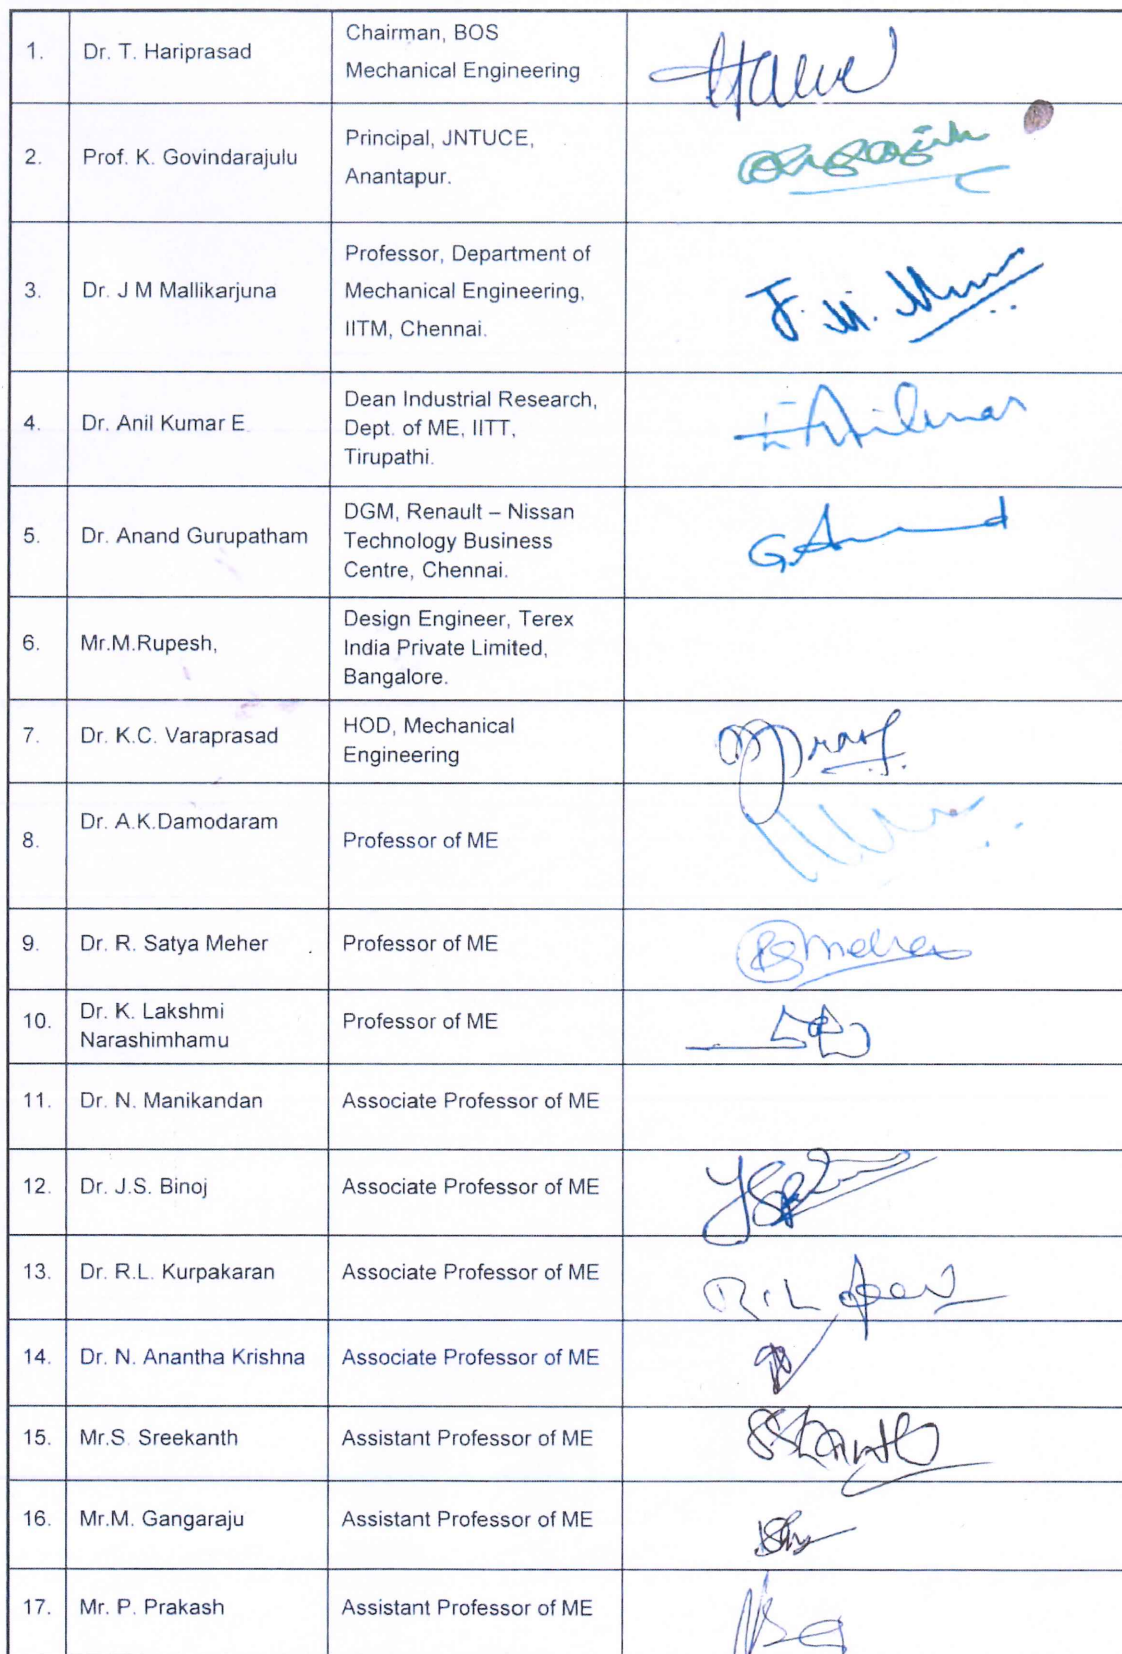 1. Dr. T. Hariprasad Chairman, BOS
Mechanical Engineering
2. Prof. K. Govindarajulu Principal, JNTUCE,
Anantapur.
3. Dr. J M Mallikarjuna Professor, Department of
Mechanical Engineering,
IITM, Chennai.
J. M.
4. Dr. Anil Kumar E Dean Industrial Research,
Dept. of ME, IITT,
Tirupathi.
5. Dr. Anand Gurupatham DGM, Renault – Nissan
Technology Business
Centre, Chennai.
G.Anand
6. Mr.M.Rupesh, Design Engineer, Terex
India Private Limited,
Bangalore.
7. Dr. K.C. Varaprasad HOD, Mechanical
Engineering
8. Dr. A.K.Damodaram Professor of ME
9. Dr. R. Satya Meher Professor of ME
10. Dr. K. Lakshmi
Narashimhamu Professor of ME
11. Dr. N. Manikandan Associate Professor of ME
12. Dr. J.S. Binoj Associate Professor of ME
13. Dr. R.L. Kurpakaran Associate Professor of ME
R.L
14. Dr. N. Anantha Krishna Associate Professor of ME
15. Mr.S. Sreekanth Assistant Professor of ME
16. Mr.M. Gangaraju Assistant Professor of ME
17. Mr. P. Prakash Assistant Professor of ME